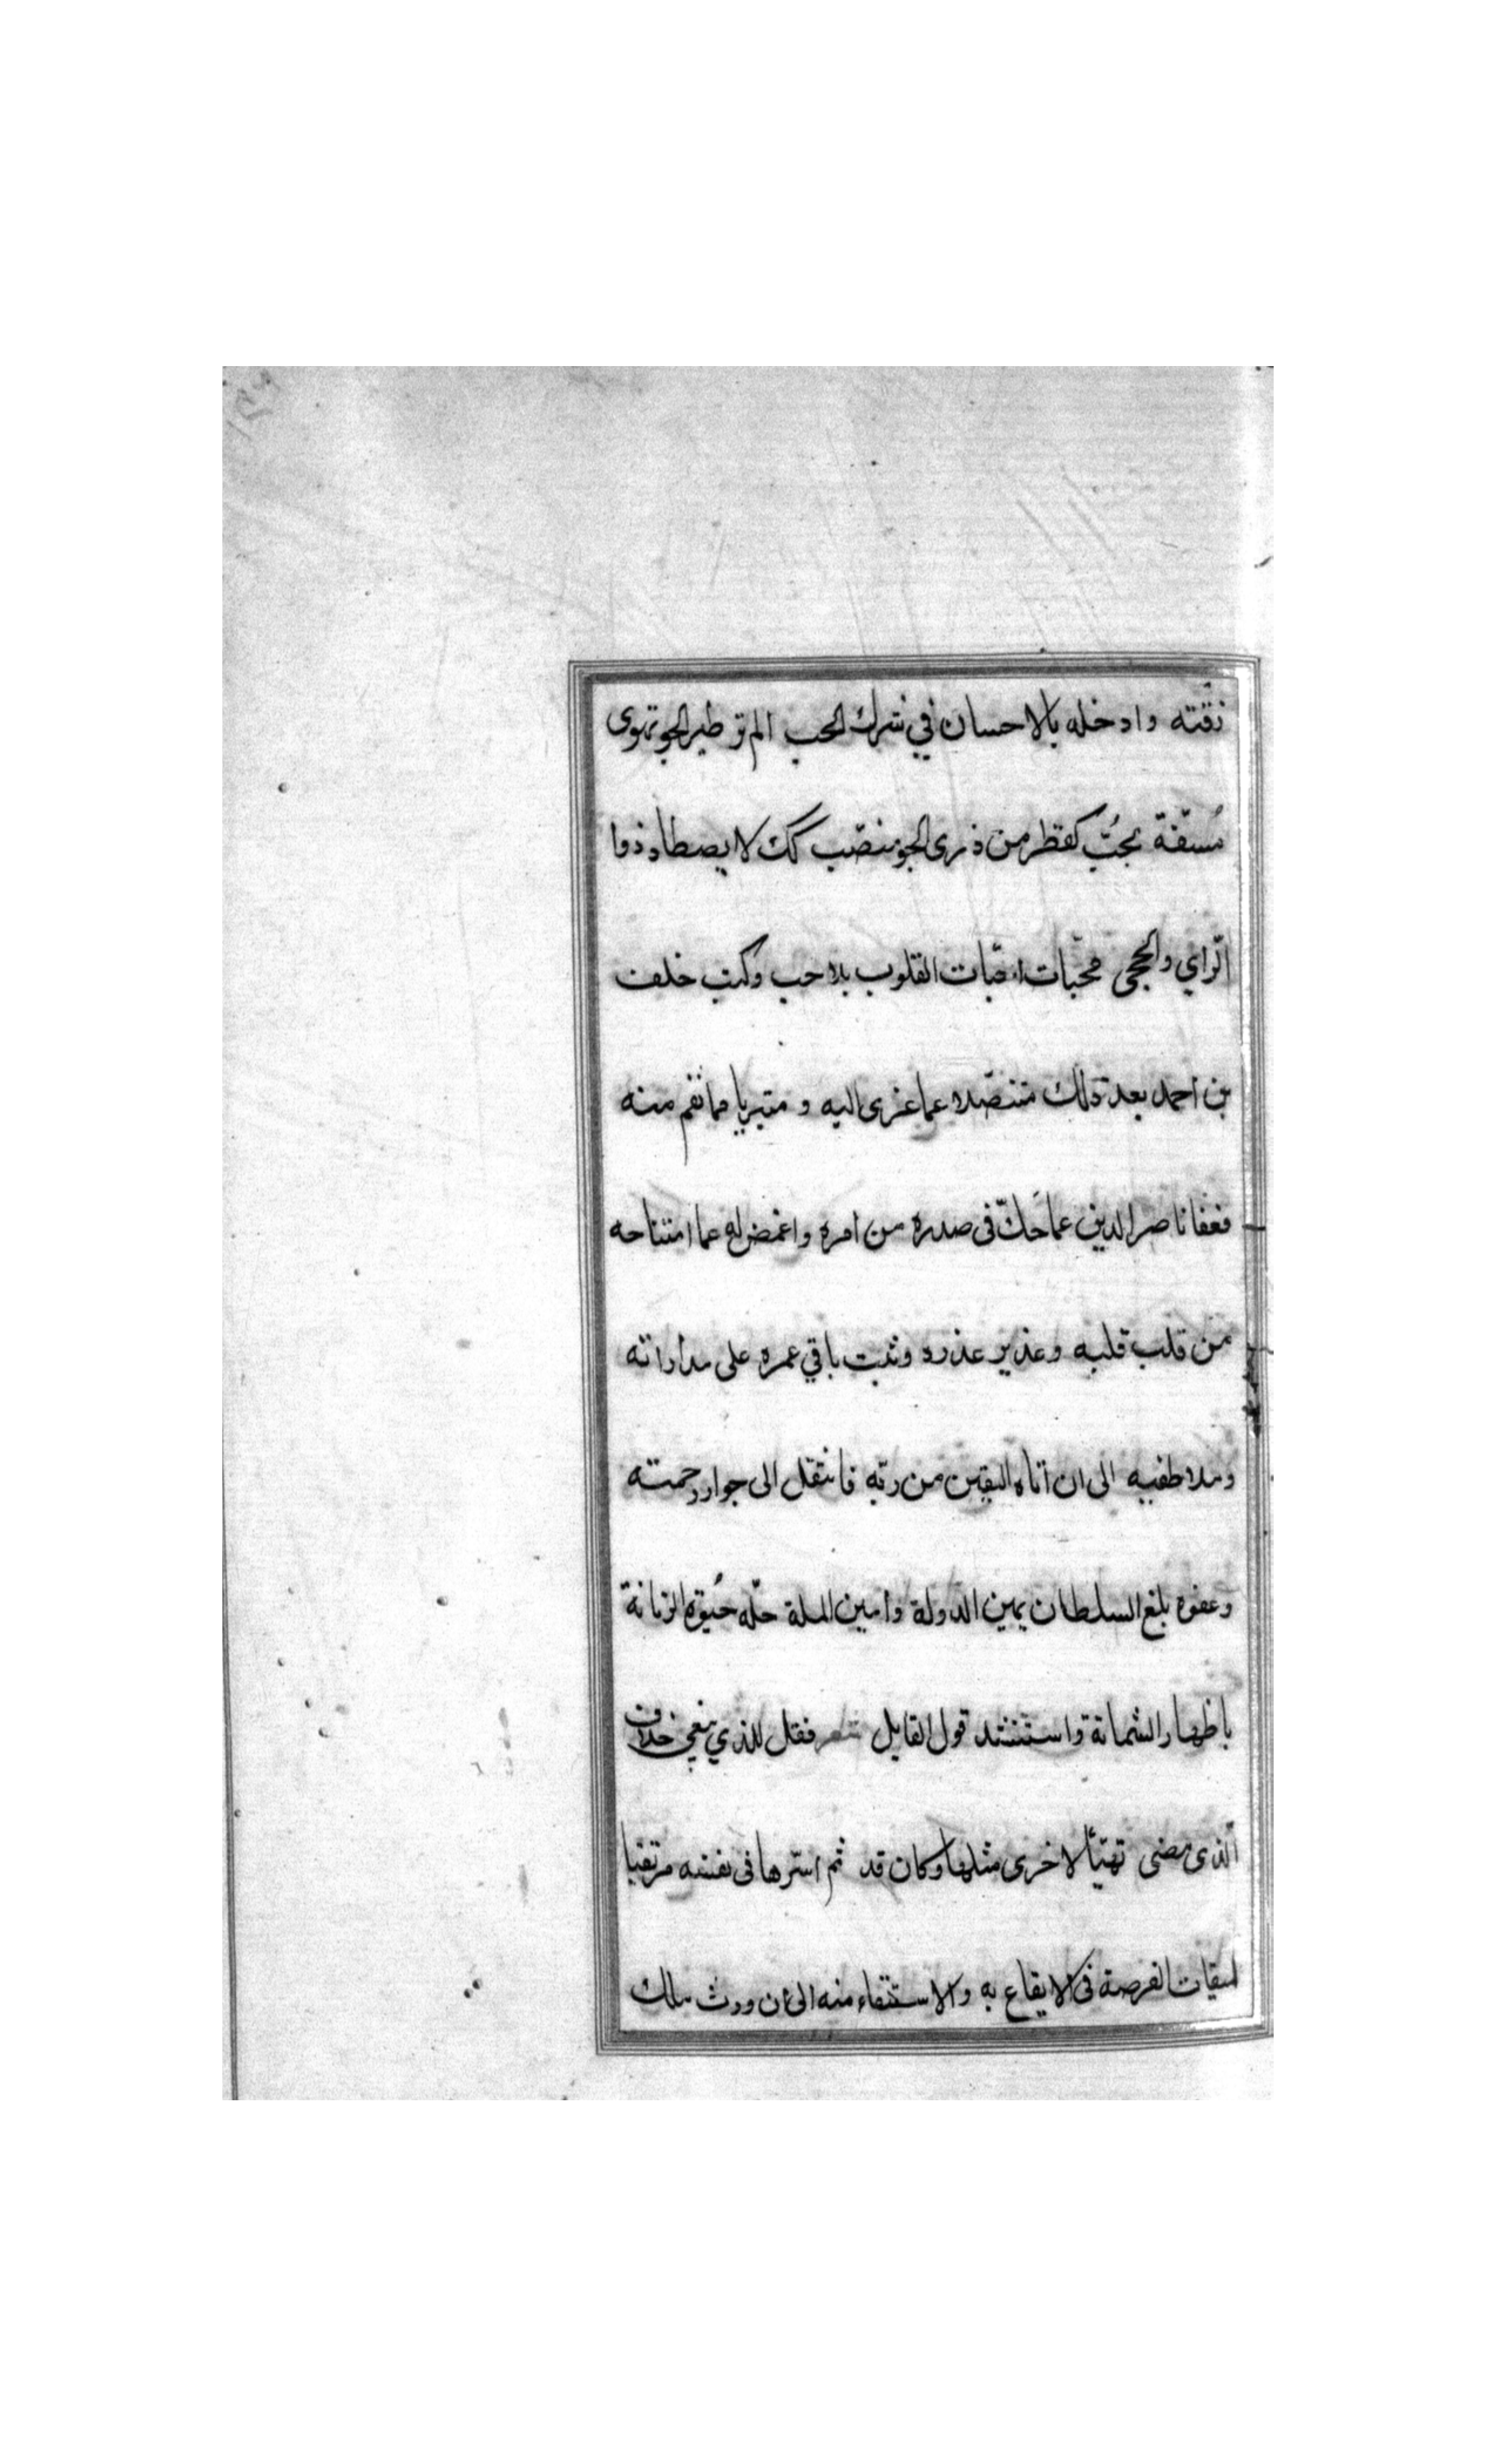 زقته وادخله بالاحسان في شرك الحب الم تر طير الجو تهوى
مُسفة بحبّ كقطر من ذرى الجو منصّب كك لا يصطاد ذوا
الرّاي والحجى محبّات احبّات القلوب بلا حب وكتب خلف
بن احمد بعد ذلك متنصّلا عما عزى اليه و متبريا مما نقم منه
فعفا ناصر الدين عما حَكّ فى صدره من امره واغمض له عما امتناحه
من قلب قلبه وعذير عذره وثبت باقي عمره على مداراته
وملاطفيه الى ان اتاه اليقين من ربّه فانتقل الى جوار رحمته
وعفوه بلغ السلطان يمين الدولة وامين الملة حلّه حُيوة الزمانة
باظهار الشماتة واستنشد قول القايل شعر فقل للذي يبغي خلاف
الّذى مضى تهيّأ لاخرى مثلها وكان قد ثم اسّرها فى نفسه مرتقبا
لميقات الفرصة فى الايقاع به والاستقفاء منه الى ان ورث ملك